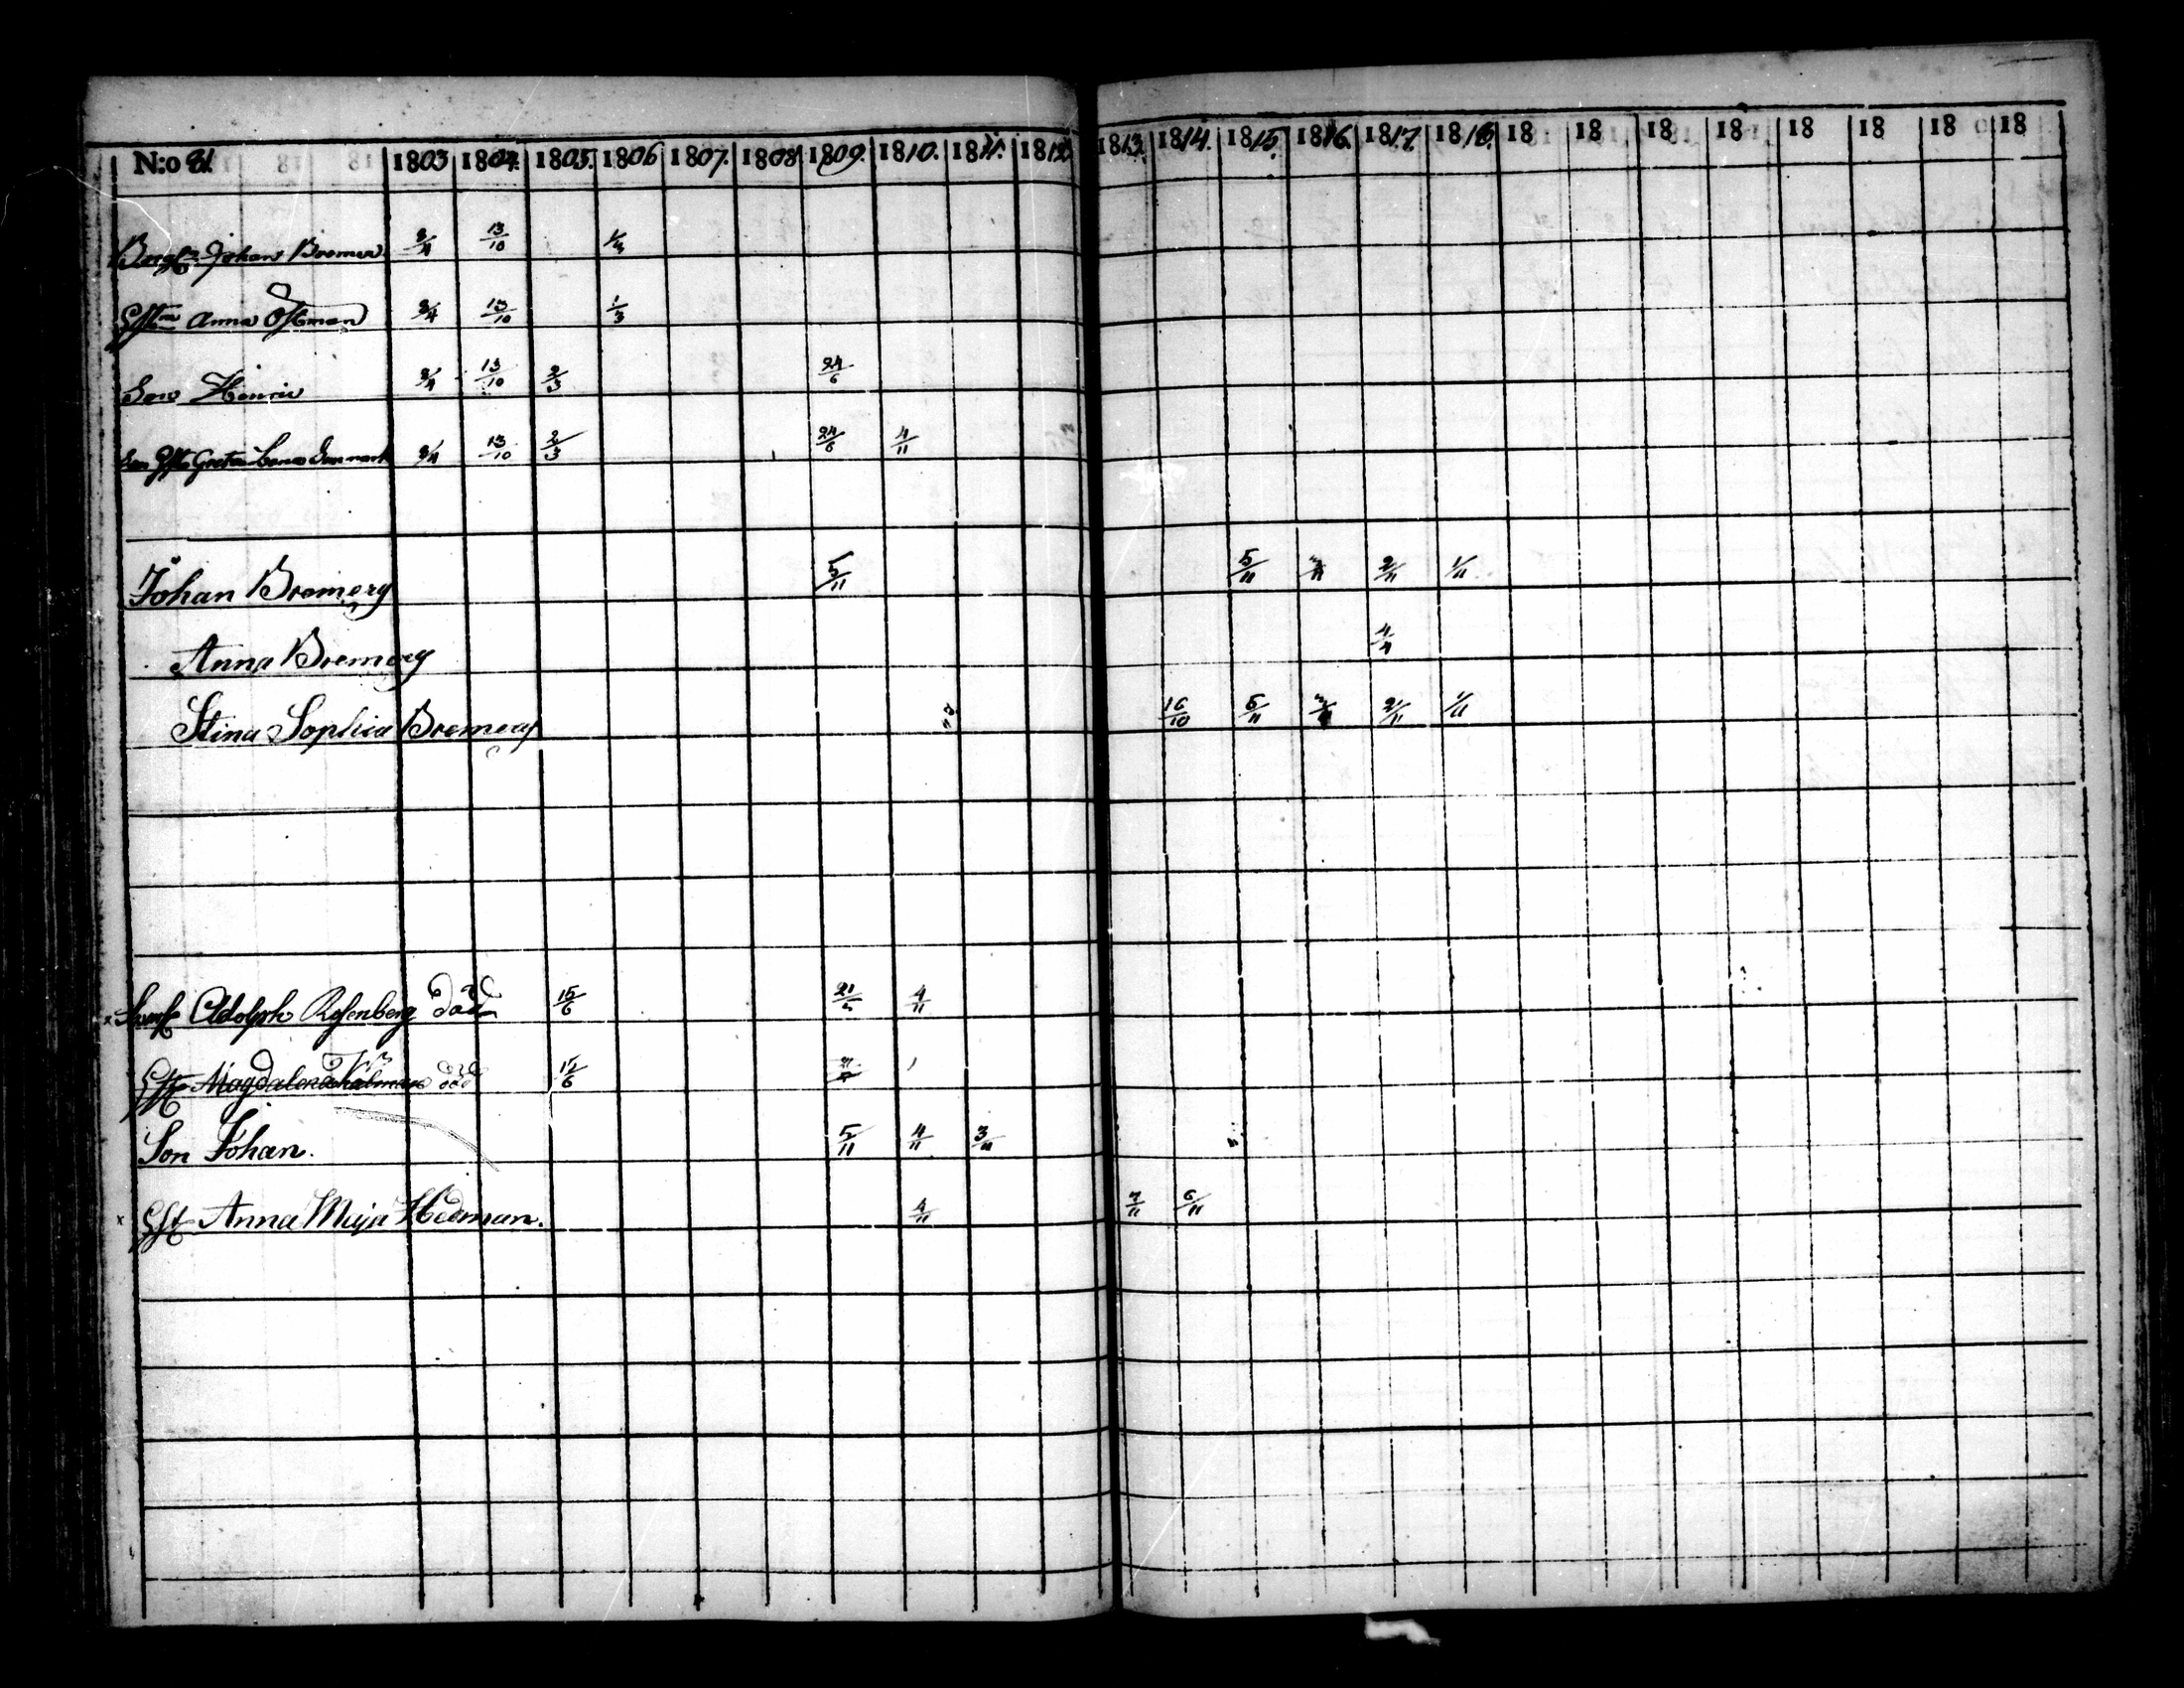 N:o 81. 1803 1804. 1805. 1806 1807. 1808 1809. 1810. 1811. 1812 1813. 1814. 1815. 1816. 1817. 1818. 18 18 18 18 18 18 18 18
Johan Bremer 3/4 13/10 1/3
Anna Östman 3/4 13/10 1/3
Son Henric 3/4 13/10 2/3 24/6
Greta Lena 3/4 13/10 2/3 24/6 4/11
Johan Bremerg 5/11 5/11 2/11 1/11
Anna Bremerg 4/4
Stina Sophia Bremerg 16/10 5/11 2/11 1/11
Adolph Rosenberg död 15/6 21/5 4/11
Hust Magdalena död 15/6
Son Johan. 5/11 4/11 3/11
Hust Anna Maja Hedman. 4/11 7/11 6/11